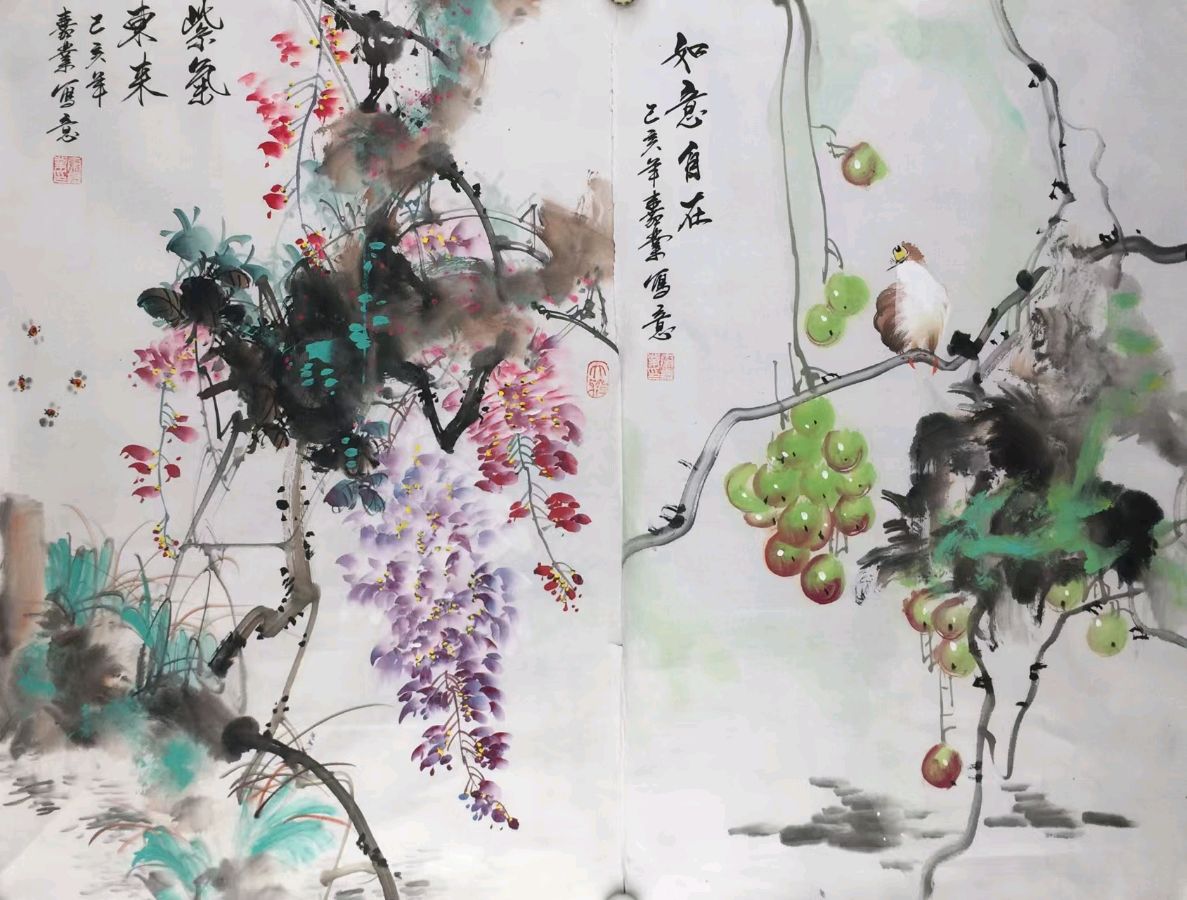 紫氣
東来
己亥年
嘉業寫意
如意自在
己亥年嘉業寫意